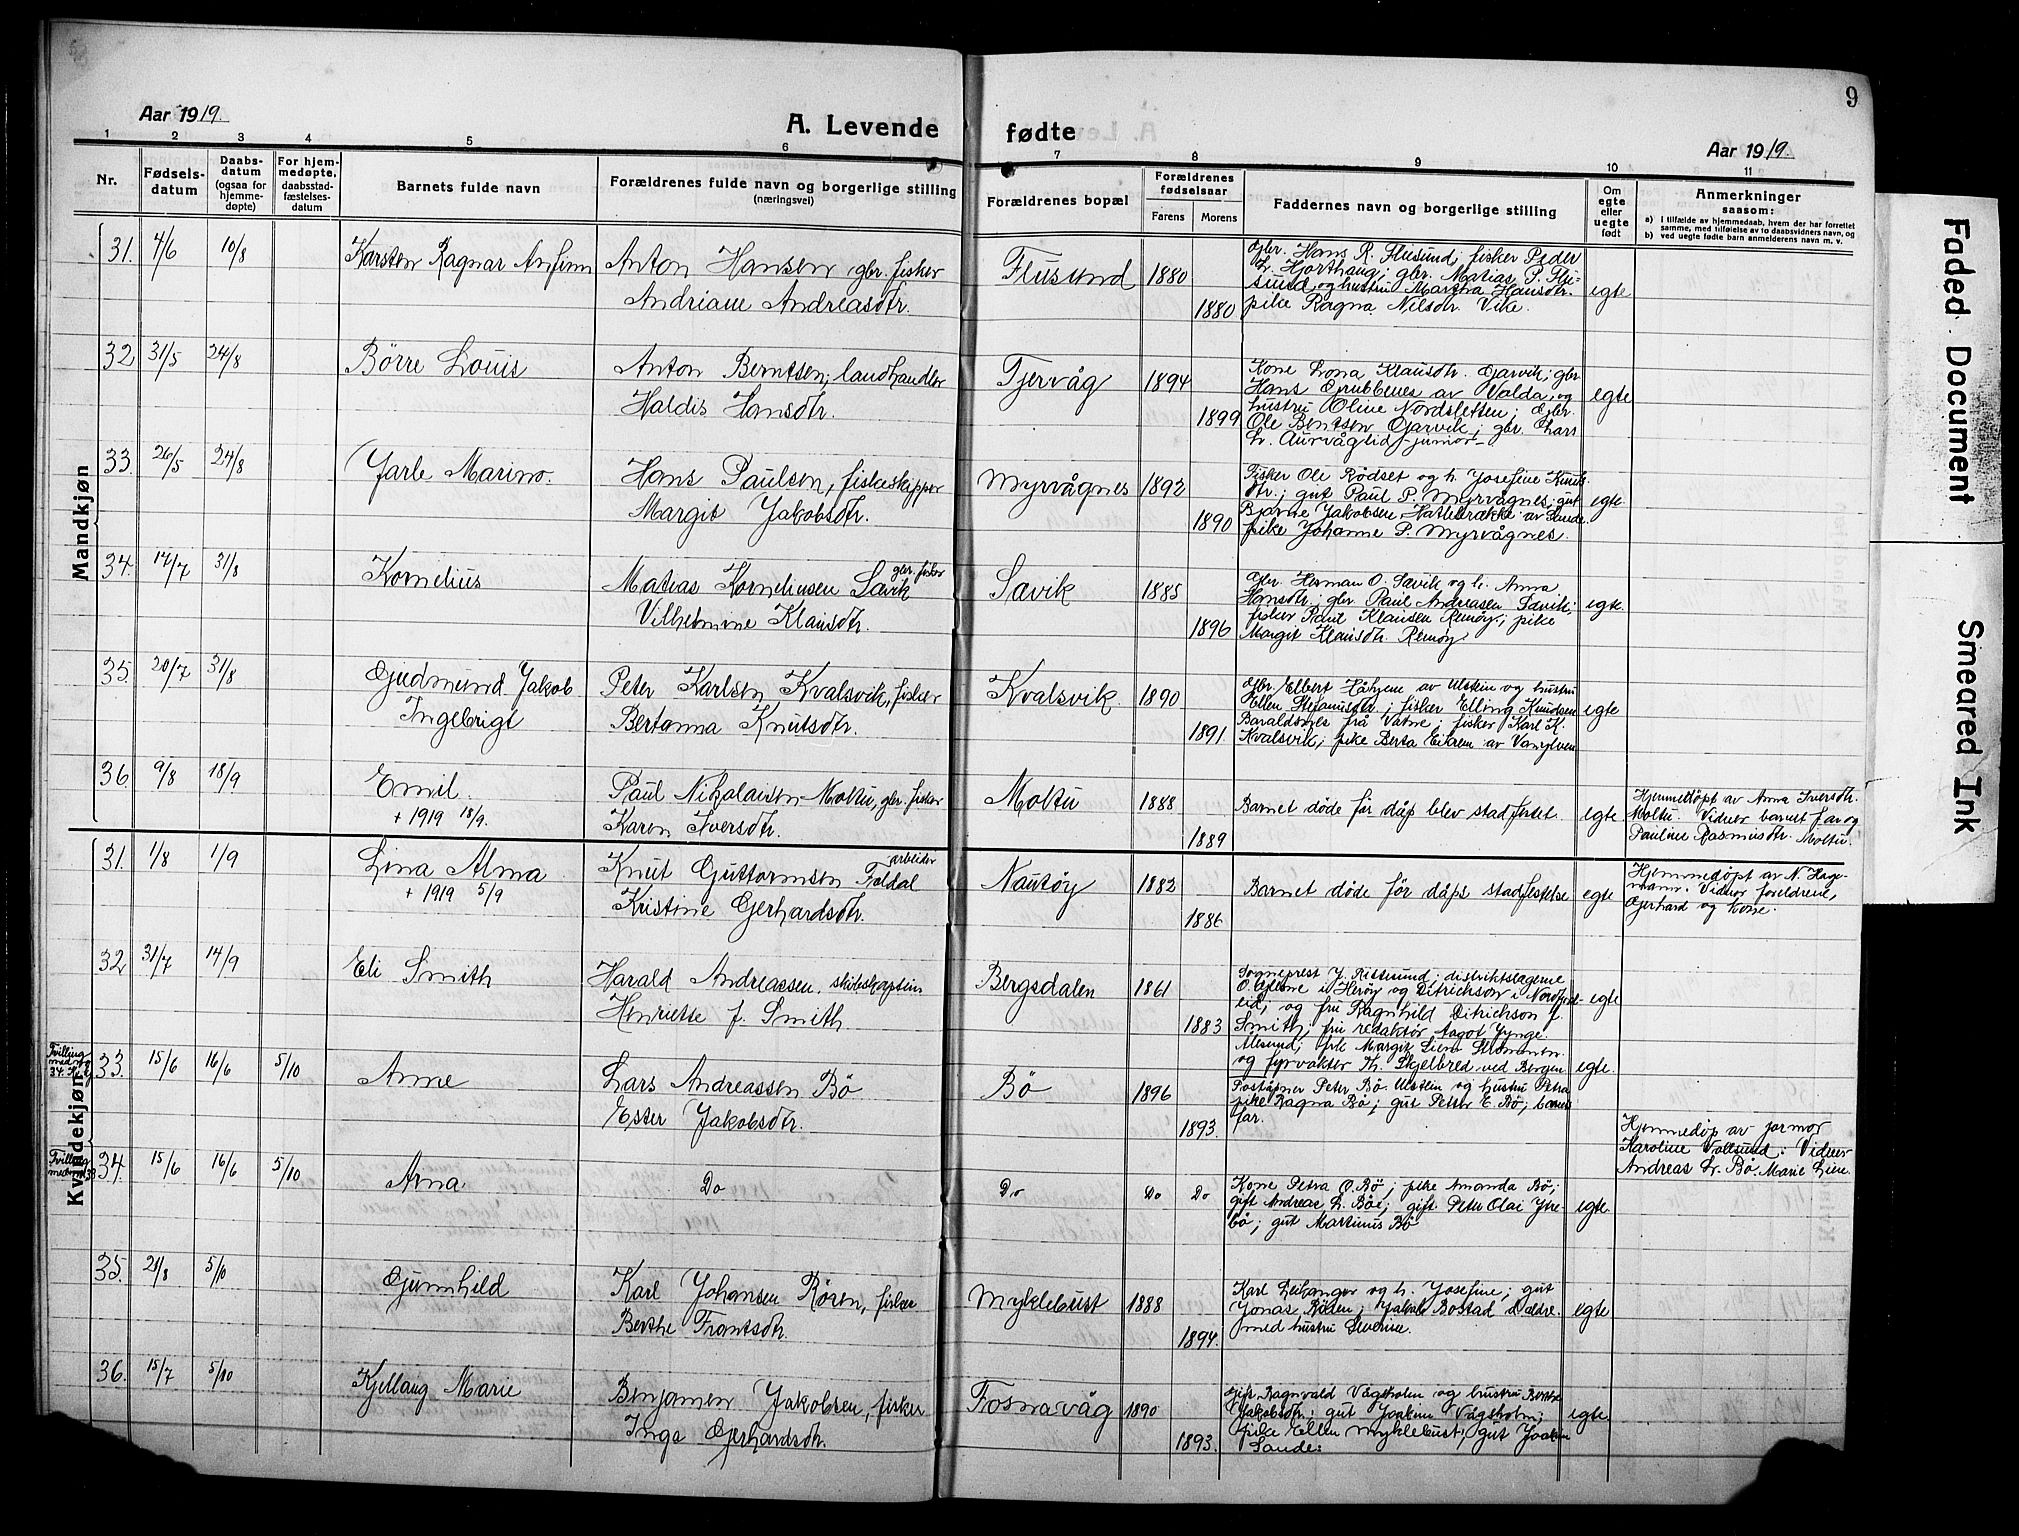 9
Aar 1919.
A. Levende
fødte
Aar 1919.
1 2 3 4 5 6 7 8 9 10 11
Nr.
Fødsels-
datum
Daabs-
datum
(ogsaa for
hjemme-
døpte)
For hjem-
medøpte,
daabsstad-
fæstelses-
datum
Barnets fulde navn
Forældrenes fulde navn og borgerlige stilling
(næringsvei)
Forældrenes bopæl
Forældrenes
fødselsaar
Farens
Morens
Faddernes navn og borgerlige stilling
Om
egte
eller
uegte
født
Anmerkninger
saasom:
a) I tilfælde av hjemmedaab, hvem der har forrettet
samme, med tilføielse av to daabsvidners navn, og
b) ved uegte født barn anmelderens navn m. v.
Mandkjøn
31. 4/6 10/8
Karsten Ragnar Anfinn
Anton Hansen, gbr. fisker
Andriane Andreasdtr.
Flusund
1880
1880
Gbr. Hans R. Flusund, fisker Peder
L. Hjorthaug; gbr. Matias P. Flu-
sund og hustru Martha Hansdtr.
pike Ragna Nilsdtr. Vike.
egte
32 31/5 24/8
Børre Louis
Anton Berntsen, landhandler
Haldis Hansdtr.
Tjervåg
1894
1899
Kone Lona Klausdtr. Gjarvik; gbr
Hans Grubbenes av Volda, og
hustru Oline Nordsletten; Gbr.
Ole Bentsen Gjarvik; gbr. Lars
L. Aurvåglid junior
egte
33. 26/5 24/8
Jarle Marino.
Hans Paulsen, fiskeskipper
Margit Jakobsdtr.
Myrvågnes
1892
1890
Fisker Ole Rødset og h. Josefine Knuts-
dtr.; gut Paul P. Myrvågnes; gut
Bjarne Jakobsen Hattebrække av Sande
pike Johanne P. Myrvågnes.
egte
34. 14/7 31/8
Kornelius
Matias Korneliusen Sævik gbr. fisker
Vilhelmine Klausdtr.
Sævik
1885
1896
Gbr. Herman O. Sævik og h. Anna
Hansdtr; gbr Paul Andreasen Sævik;
fisker Paul Klausen Remøy; pike
Margit Klausdtr. Remøy
egte
35. 20/7 31/8
Gudmund Jakob
Ingebrigt
Peter Karlsen Kvalsvik, fisker
Bertanna Knutsdtr.
Kvalsvik
1890
1891
Gbr. Elbert Håhjem av Ulstein og hustru
Ellen Stefanusdtr; fisker Elling Knudsen
Baraldsnes frå Vatne; fisker Karl K.
Kvalsvik; pike Berta Eikrem av Vanylven
egte
36. 9/8 18/9
Emil.
+ 1919 18/9.
Paul Nikolaisen Moltu, gbr. fisker
Karen Iversdtr.
Moltu
1888
1889
Barnet døde før dåp blev stadfestet.
egte
Hjemmedøpt av Anna Iversdtr.
Moltu. Vidner barnets far og
Pauline Rasmusdtr. Moltu.
Kvindekjøn
31. 1/8 1/9
Lina Alma
+ 1919 5/9
Knut Guttormsen Foldal arbeider
Kristine Gerhardsdtr.
Nautøy
1882
1886
Barnet døde før dåps stadfestelse
egte
Hjemmedøpt av N. Hage-
mann. Vidner foreldrene,
Gerhard og kone.
32 31/7 14/9
Eli Smith
Harald Andreassen. skibskaptein
Henriette f. Smith
Bergsdalen
1861
1883
Sogneprest J. Rittesund. distriktslægerne
O. Gjerde i Herøy og Ditrichson i Nordfjord-
eid, og fru Ragnhild Ditrichson f.
Smith, fru redaktør Aagot Jynge
Ålesund, frk Margit Liem Strømmen
og fyrvokter Th. Skjelbred ved Bergen
egte
Tvilling
med no
34.
33. 15/6 16/6 5/10
Anne
Lars Andreassen Bø
Ester Jakobsdtr.
Bø
1896
1893.
Poståpner Peter Bø Ulstein og hustru Petra
pike Ragna Bø; gut Petter E. Bø; barnets
far.
egte.
Hjemmedøp av jormor
Karoline Vollsund. Vidner
Andreas L. Bø. Marie Lien.
Tvilling
med no 33
34. 15/6 16/6 5/10
Arna
Do
Do
Do Do
Kone Petra O. Bø; pike Amanda Bø;
gift Andreas L. Bøe; gift. Peter Olai Ytre-
bø; gut Martinus Bø
egte.
35. 21/8 5/10
Gunnhild
Karl Johansen Røren, fisker
Berthe Frantsdtr.
Myklebust
1888
1894.
Karl Leikanger og h. Josefine; gut
Jonas Røren; Jakob Bostad d. ældre.
med hustru Severine.
egte
36. 15/7 5/10
Kjellaug Marie
Benjamen Jakobsen, fisker
Inga Gjerhardsdtr.
Fosnavåg
1890
1893.
Gift Ragnvald Vågsholm og hustru Berthe
Jakobsdtr; gut Joakim Vågsholm;
pike Ellen Myklebust; gut Joakim
Sande.
egte.
Faded Document
Smeared Ink